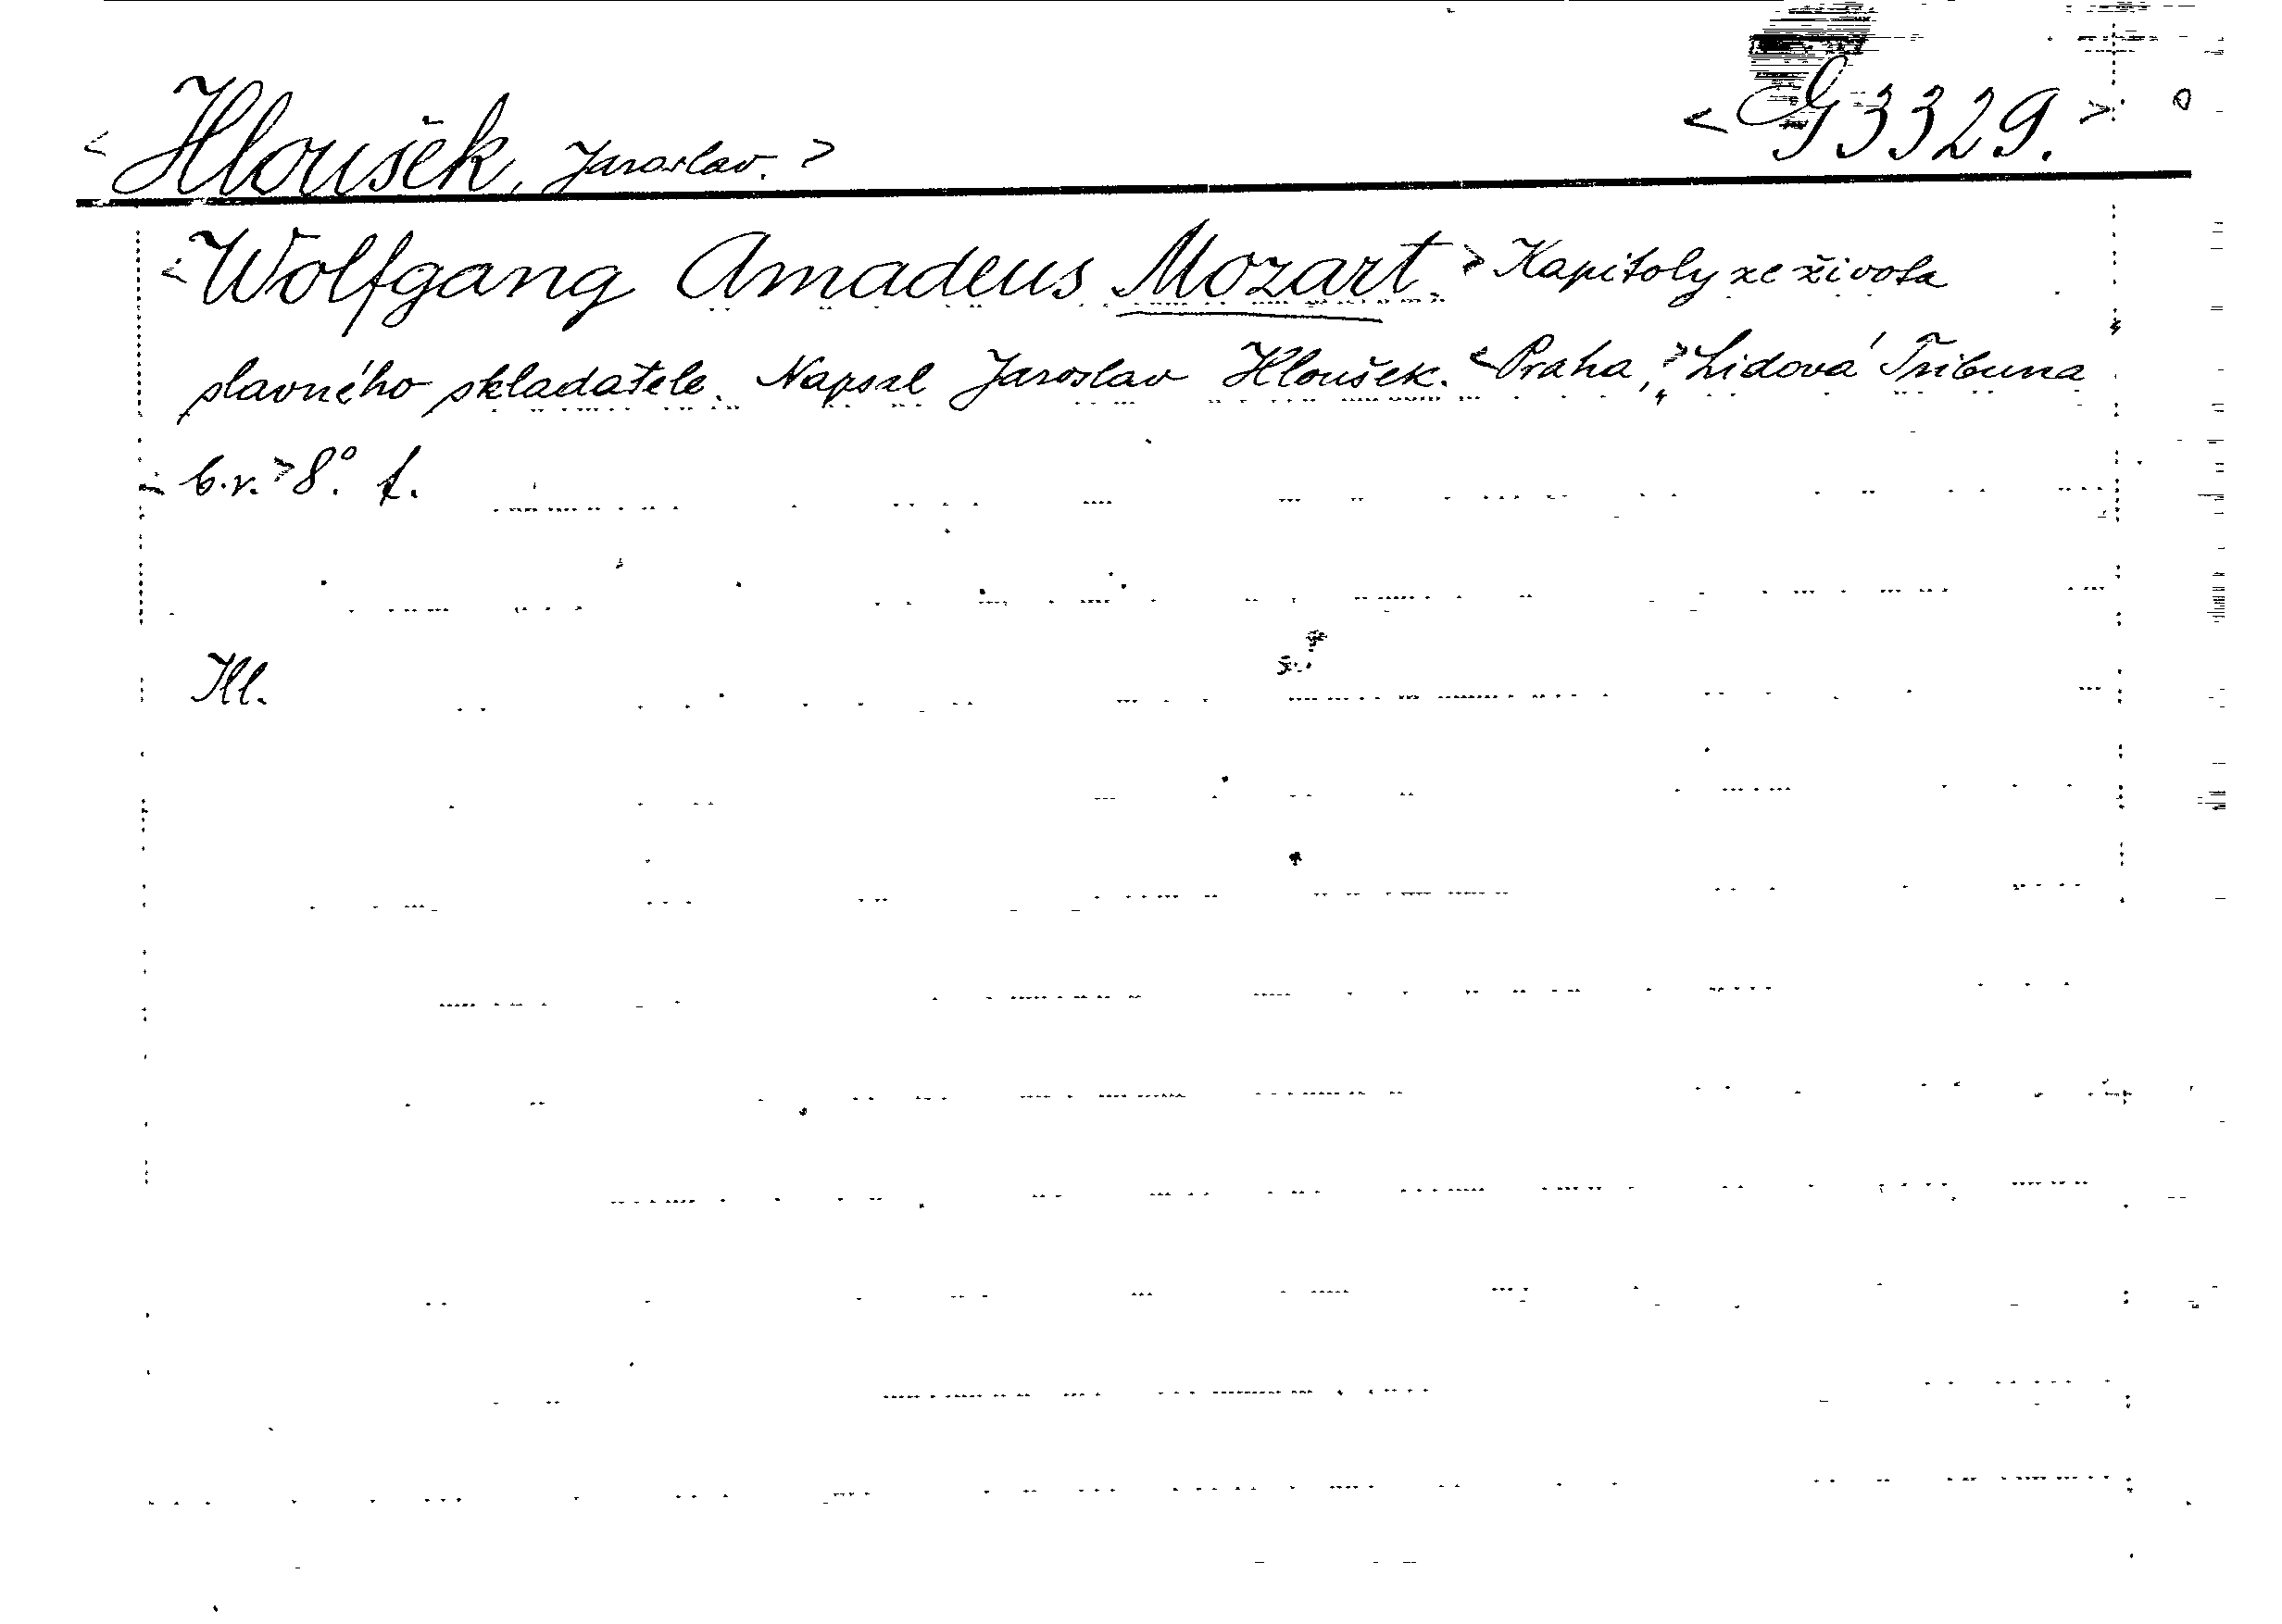 < Hloušek, Jaroslav. > < G 3329. > 0
< Wolfgang Amadeus Mozart. > Kapitoly ze života
slavného skladatele. Napsal Jaroslav Hloušek. < Praha, > Lidová Tribuna
< b.r. > 8°. f.
Hl.